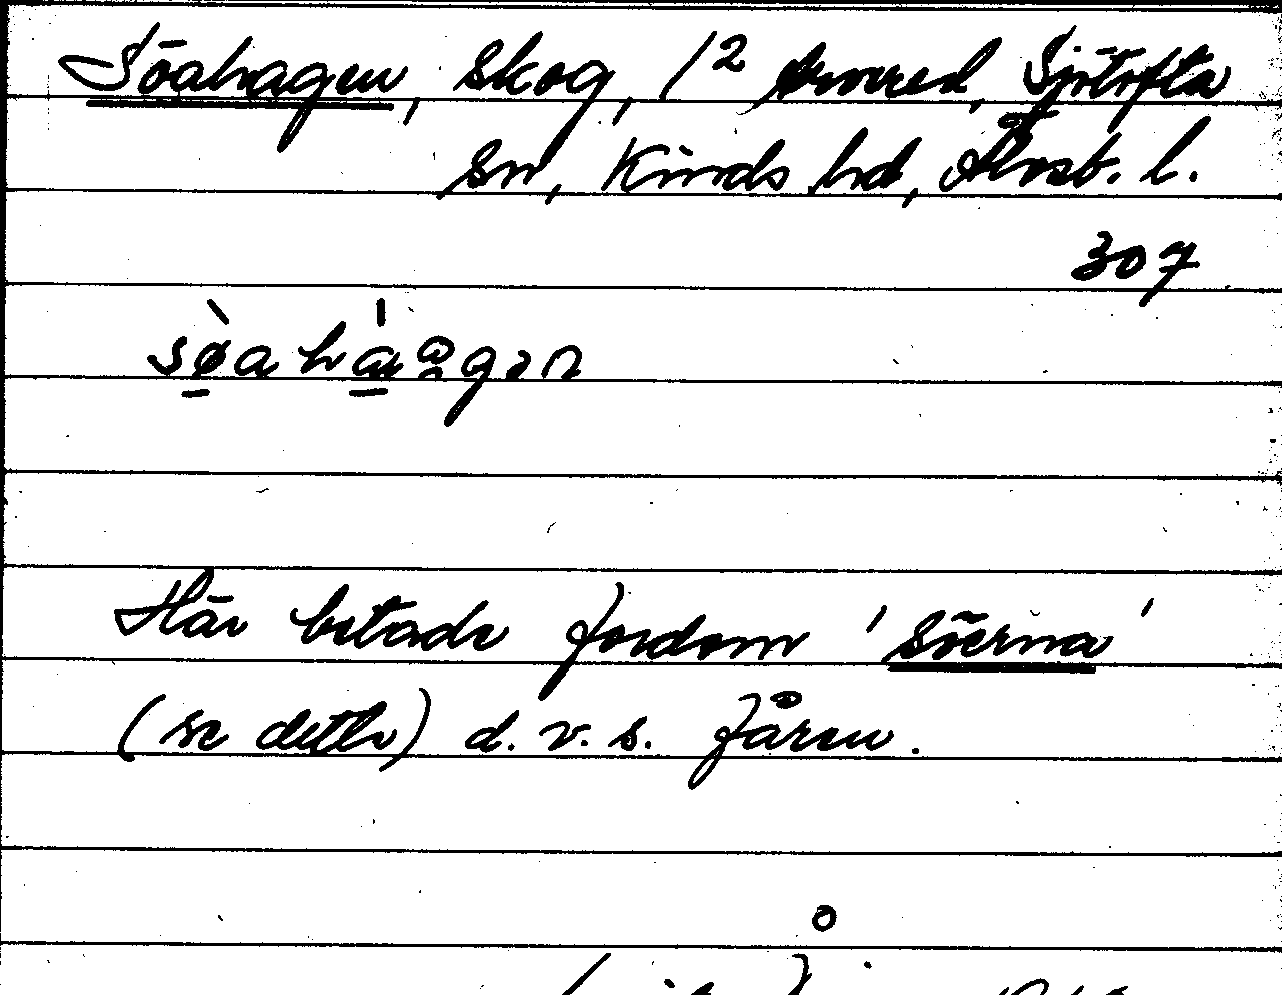 Söahagen, skog, 1² Arnared, Sjötofta
sn, Kinds hd, Älvsb. l.
307
sø̀a hàågən
Här betade fordom 'söerna'
(se detta) d. v. s. fåren.